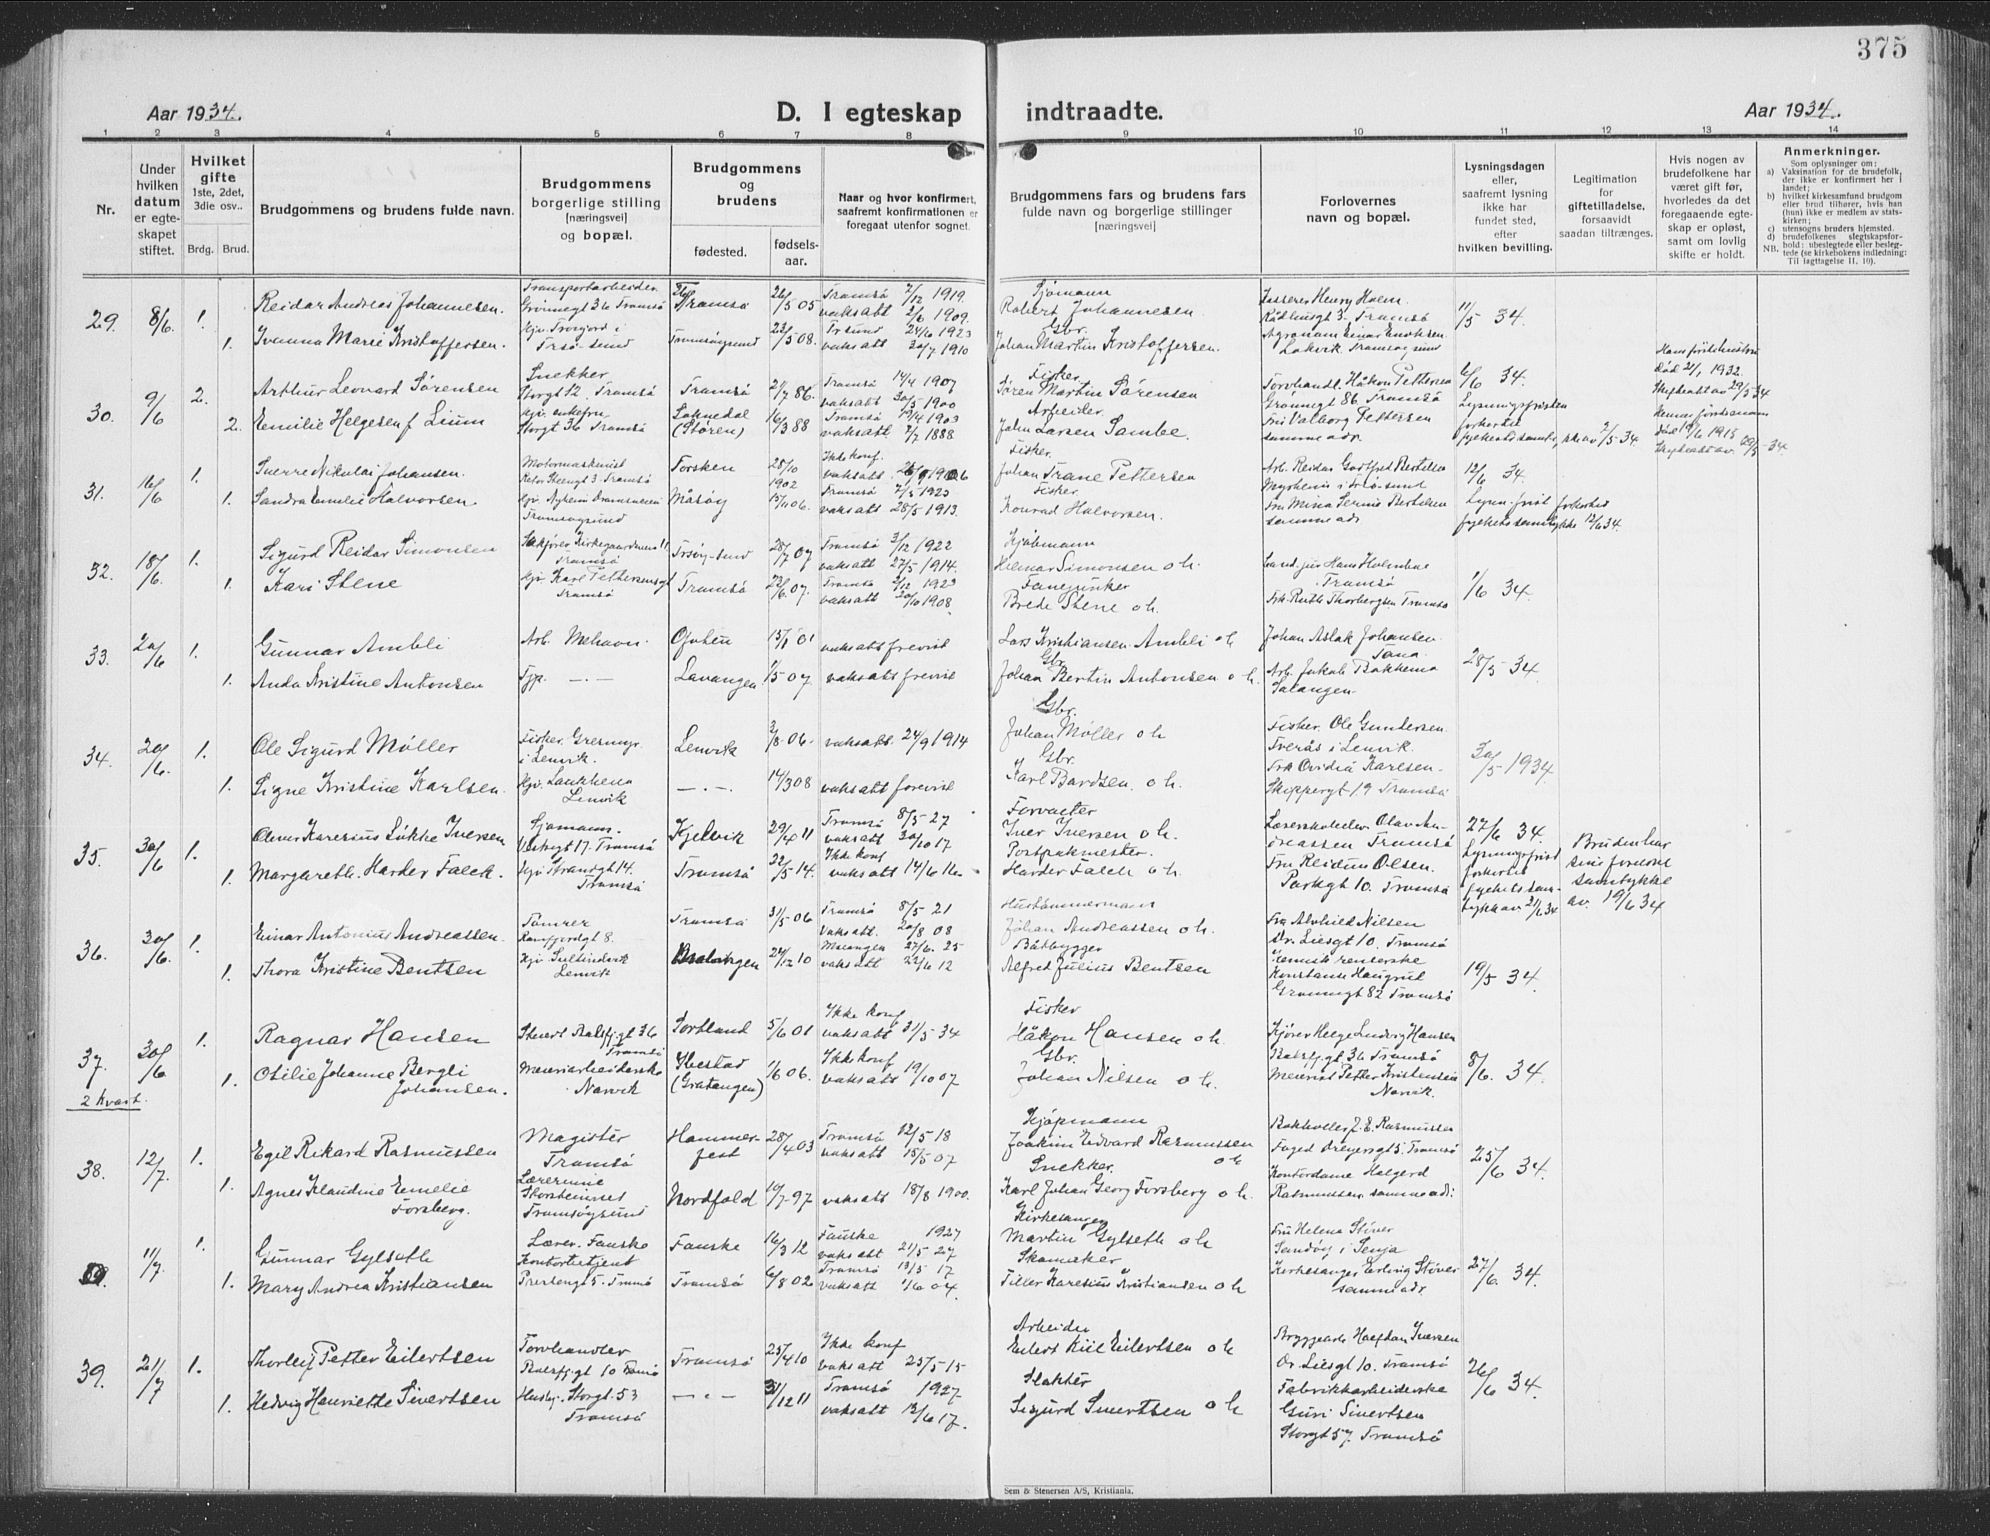 375
Aar 1934.
D. I egteskap indtraadte.
Aar 1934.
1 2 3 4 5 6 7 8 9 10 11 12 13 14
Nr.
Under hvilken datum er egte- skapet stiftet.
Hvilket gifte 1ste, 2det, 3die osv..
Brdg. Brud.
Brudgommens og brudens fulde navn.
Brudgommens borgerlige stilling [næringsvei] og bopæl.
Brudgommens og brudens
fødested.
fødsels- aar.
Naar og hvor konfirmert, saafremt konfirmationen er foregaat utenfor sognet.
Brudgommens fars og brudens fars fulde navn og borgerlige stillinger [næringsvei]
Forlovernes navn og bopæl.
Lysningsdagen eller, saafremt lysning ikke har fundet sted, efter hvilken bevilling.
Legitimation for giftetilladelse, forsaavidt saadan tiltrænges.
Hvis nogen av brudefolkene har været gift før, hvorledes da det foregaaende egte- skap er opløst, samt om lovlig skifte er holdt.
Anmerkninger.
Som oplysninger om:
a) Vaksination for de brudefolk, der ikke er konfirmert her i landet;
b) hvilket kirkesamfund brudgom eller brud tilhører, hvis han (hun) ikke er medlem av stats- kirken;
c) utensogns bruders hjemsted.
d) brudefolkenes slegtskapsfor- hold: ubeslegtede eller besleg-
NB. tede (se kirkebokens indledning: Til iagttagelse II, 10).
29. 8/6 1. Reidar Andreas Johannesen. Transportarbeider Grønnegt 36 Tromsø Tromsø 26/5 05 Tromsø 2/12 1919. vaksatt 2/6 1909. Sjømann Robert Johannesen Kasserer Henry Holm. Rådhusgt 3. Tromsø 11/5 34.
1. Ivanna Marie Kristoffersen. Tromsøysund 23/5 08. 24/6 1923 vaksatt 30/7 1910 Gbr. Johan Martin Kristoffersen. Agronom Einar Enoksen Lakvik Tromsøysund
30. 9/6 2. Arthur Leonard Sørensen Snekker Storgt 12 Tromsø Tromsø 21/7 86. Tromsø 14/4 1907 vaksatt 30/5 1900 Fisker. Søren Martin Sørensen Torvhandl. Håkon Pettersen Grønnegt 86 Tromsø 6/6 34. død 2/1 1932. Skifteatt av 29/5 34
2. Emilie Helgesen f. Lium enkefru Storgt 36 Tromsø (Støren) 16/3 88 Tromsø 19/4 1903 vaksatt 7/7 1888 Arbeider. John Larsen Sambe. Fru Valborg Pettersen samme adr. Lysningsfristen forkortet
31. 16/6 1. Sverre Nikolai Johansen. Motormaskinist Tromsø Torsken 28/10 1902 Ikke konf. vaksatt Fisker. Johan Trane Pettersen Arb. Reidar Godtfred Bertelsen 12/6 34.
1. Sandra Emelie Halvorsen. Tromsøysund Måsøy 15/11 06. Tromsø 7/5 1923 vaksatt 28/5 1913. Fisker. Konrad Halvorsen. Fru Mina Bertelsen samme adr. 12/6 34.
32. 18/6 1. Sigurd Reidar Simonsen Tromsø 28/7 07 Tromsø 3/12 1922 vaksatt 27/5 1914. Kjøbmann Hilmar Simonsen o h. Cand. jur Hans Holmboe Tromsø 1/6 34.
1. Kari Stene Karl Pettersensgt Tromsø Tromsø 23/6 07. Tromsø 2/12 1923 vaksatt 20/10 1908. Fanejunker Brede Stene o h. Frk. Ruth Thorbergsen Tromsø
33. 20/6 1. Gunnar Ambli Arb. Mehavn. Ofoten 15/1 01 vaksatt frevist Lars Kristiansen Ambli o h Johan Aslak Johansen. Tana. 28/5 34.
1. Anda Kristine Antonsen Tjp. — . — Lavangen 1/5 07. vaksatt frevist Gbr. Johan Bertin Antonsen o h. Arb. Jakob Bakkemo Salangen.
34. 20/6. 1. Ole Sigurd Møller Fisker. i Lenvik. Lenvik 3/8 06. vaksatt. 24/9 1914 Gbr. Johan Møller o h Fisker. Ole Gundersen Tverås i Lenvik. 30/5 1934.
1. Signe Kristine Karlsen. Lenvik — . — . 14/3 08 vaksatt forevist Gbr. Karl Bardsen. o h. Frk Ovidia Karlsen. Skippergt 19 Tromsø
35. 30/6 1. Oliver Karenius Løkke Iversen Sjømann. Vestregt 17. Tromsø Kjelvik 29/4 11 Tromsø 8/5 27 vaksatt 30/10 17 Forvalter Iver Iversen o h. Olav Andreassen Tromsø 27/6 34.
1. Margareth. Harder Falck. Strandgt 14. Tromsø Tromsø 22/5 14. Ikke konf vaksatt 14/6 16. Postpakmester. Harder Falck o h. Fru Reidun Olsen. Parkgt 10. Tromsø Lysningsfrist forkortet fylkets sam- tykke av. 21/6 34 Bruden har sine foreldre samtykke av. 19/6 34
36. 30/6. 1. Einar Antonius Andreassen. Tømrer Ramfjordgt 8. Tromsø 31/5 06 Tromsø 8/5 21 vaksatt. 20/8 08 Hustømmermann Johan Andreassen o h. Fru Alvhild Nilsen Dr. Liesgt 10. Tromsø 19/5 34.
1. Thora Kristine Bentsen Lenvik 24/12 10 Malangen 27/6. 25 vaksatt 22/6 12 Båtbygger Alfred Julius Bentsen Konstanse Haugrud Grønnegt 82 Tromsø
37. 30/6 1. Ragnar Hansen Stuert Balsfjgt 36 Tromsø Sortland 5/6 01 Ikke konf vaksatt 31/5 34 Fisker Håkon Hansen o h. Kjører Helge Ludvig Hansen Balsfjgt 36 Tromsø 8/6. 34.
2 kvart. 1. Otilie Johanne Bergli Johansen. Meieriarbeiderske Narvik Ibestad (Gratangen) 1/6 06. Ikke konf vaksatt 19/10 07 Gbr. Johan Nilsen o h. Meierist Petter Kristensen Narvik.
38. 12/7. 1. Egil Rikard Rasmussen Magister Tromsø Hammer- fest 28/4 03 Tromsø 12/5 18 vaksatt 15/5 07 Kjøpmann Joakim Edvard Rasmussen o h Bokholder J. E. Rasmussen Foged Dreyersgt 5. Tromsø 25/6 34.
1. Agnes Klaudine Emelie Forsberg. Lærerinne Storsteinnes Tromsøysund Nordfold 19/7. 97 vaksatt 18/8 1900. Snekker. Karl Johan Georg Forsberg o h. Kontordame Halgerd Rasmussen samme adr.
11/7. 1. Gunnar Gylseth Lærer. Fauske Fauske 16/3 12 Fauske 1927 vaksatt 21/5 27 Kirkesanger Martin Gylseth o h Fru Helena Støver Sandøy i Senja 27/6. 34.
1. Mary Andrea Kristiansen Kontorbetjent Tromsø Tromsø 6/8 02 Tromsø 13/5 17 vaksatt 1/6 04. Skomaker Tiller Karesius Kristiansen o h Kirkesanger Erling Støver samme adr.
39. 21/7 1. Thorleif Petter Eilertsen Torvhandler Balsfjgt 10 Tromsø Tromsø 25/4 10 Ikke konf vaksatt 25/5 15 Arbeider Eilert Kiil Eilertsen o h Bryggearb. Halfdan Iversen Dr. Liesgt 10. Tromsø 26/6 34.
1. Hedvig Henriette Sivertsen Storgt. 53 Tromsø — . — 31/12 11 Tromsø 1927. vaksatt 12/6 17. Slakter Sigurd Sivertsen o h Fabrikkarbeiderske Guri Sivertsen Storgt 57. Tromsø
Sem & Stenersen A/S, Kristiania.